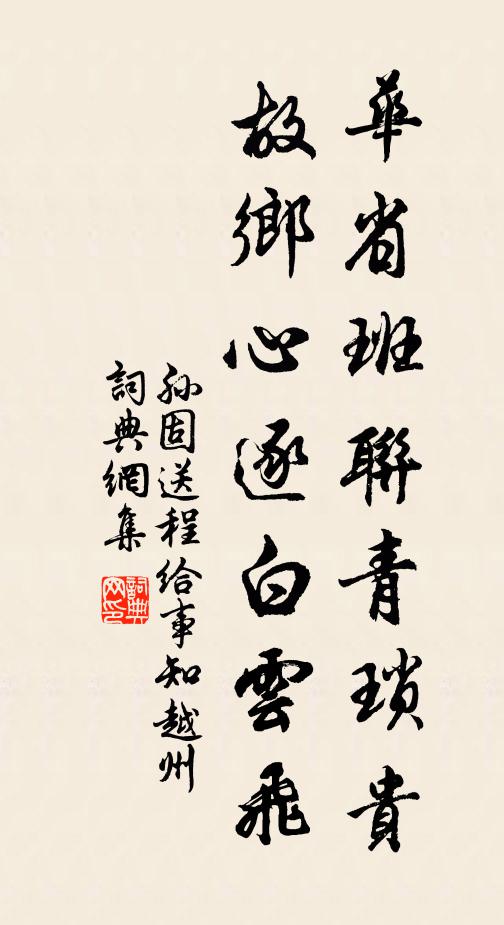 華省班聯青瑣貴
故鄉心逐白雲飛
孫固送程給事知越州
詞典網集
詞典網印